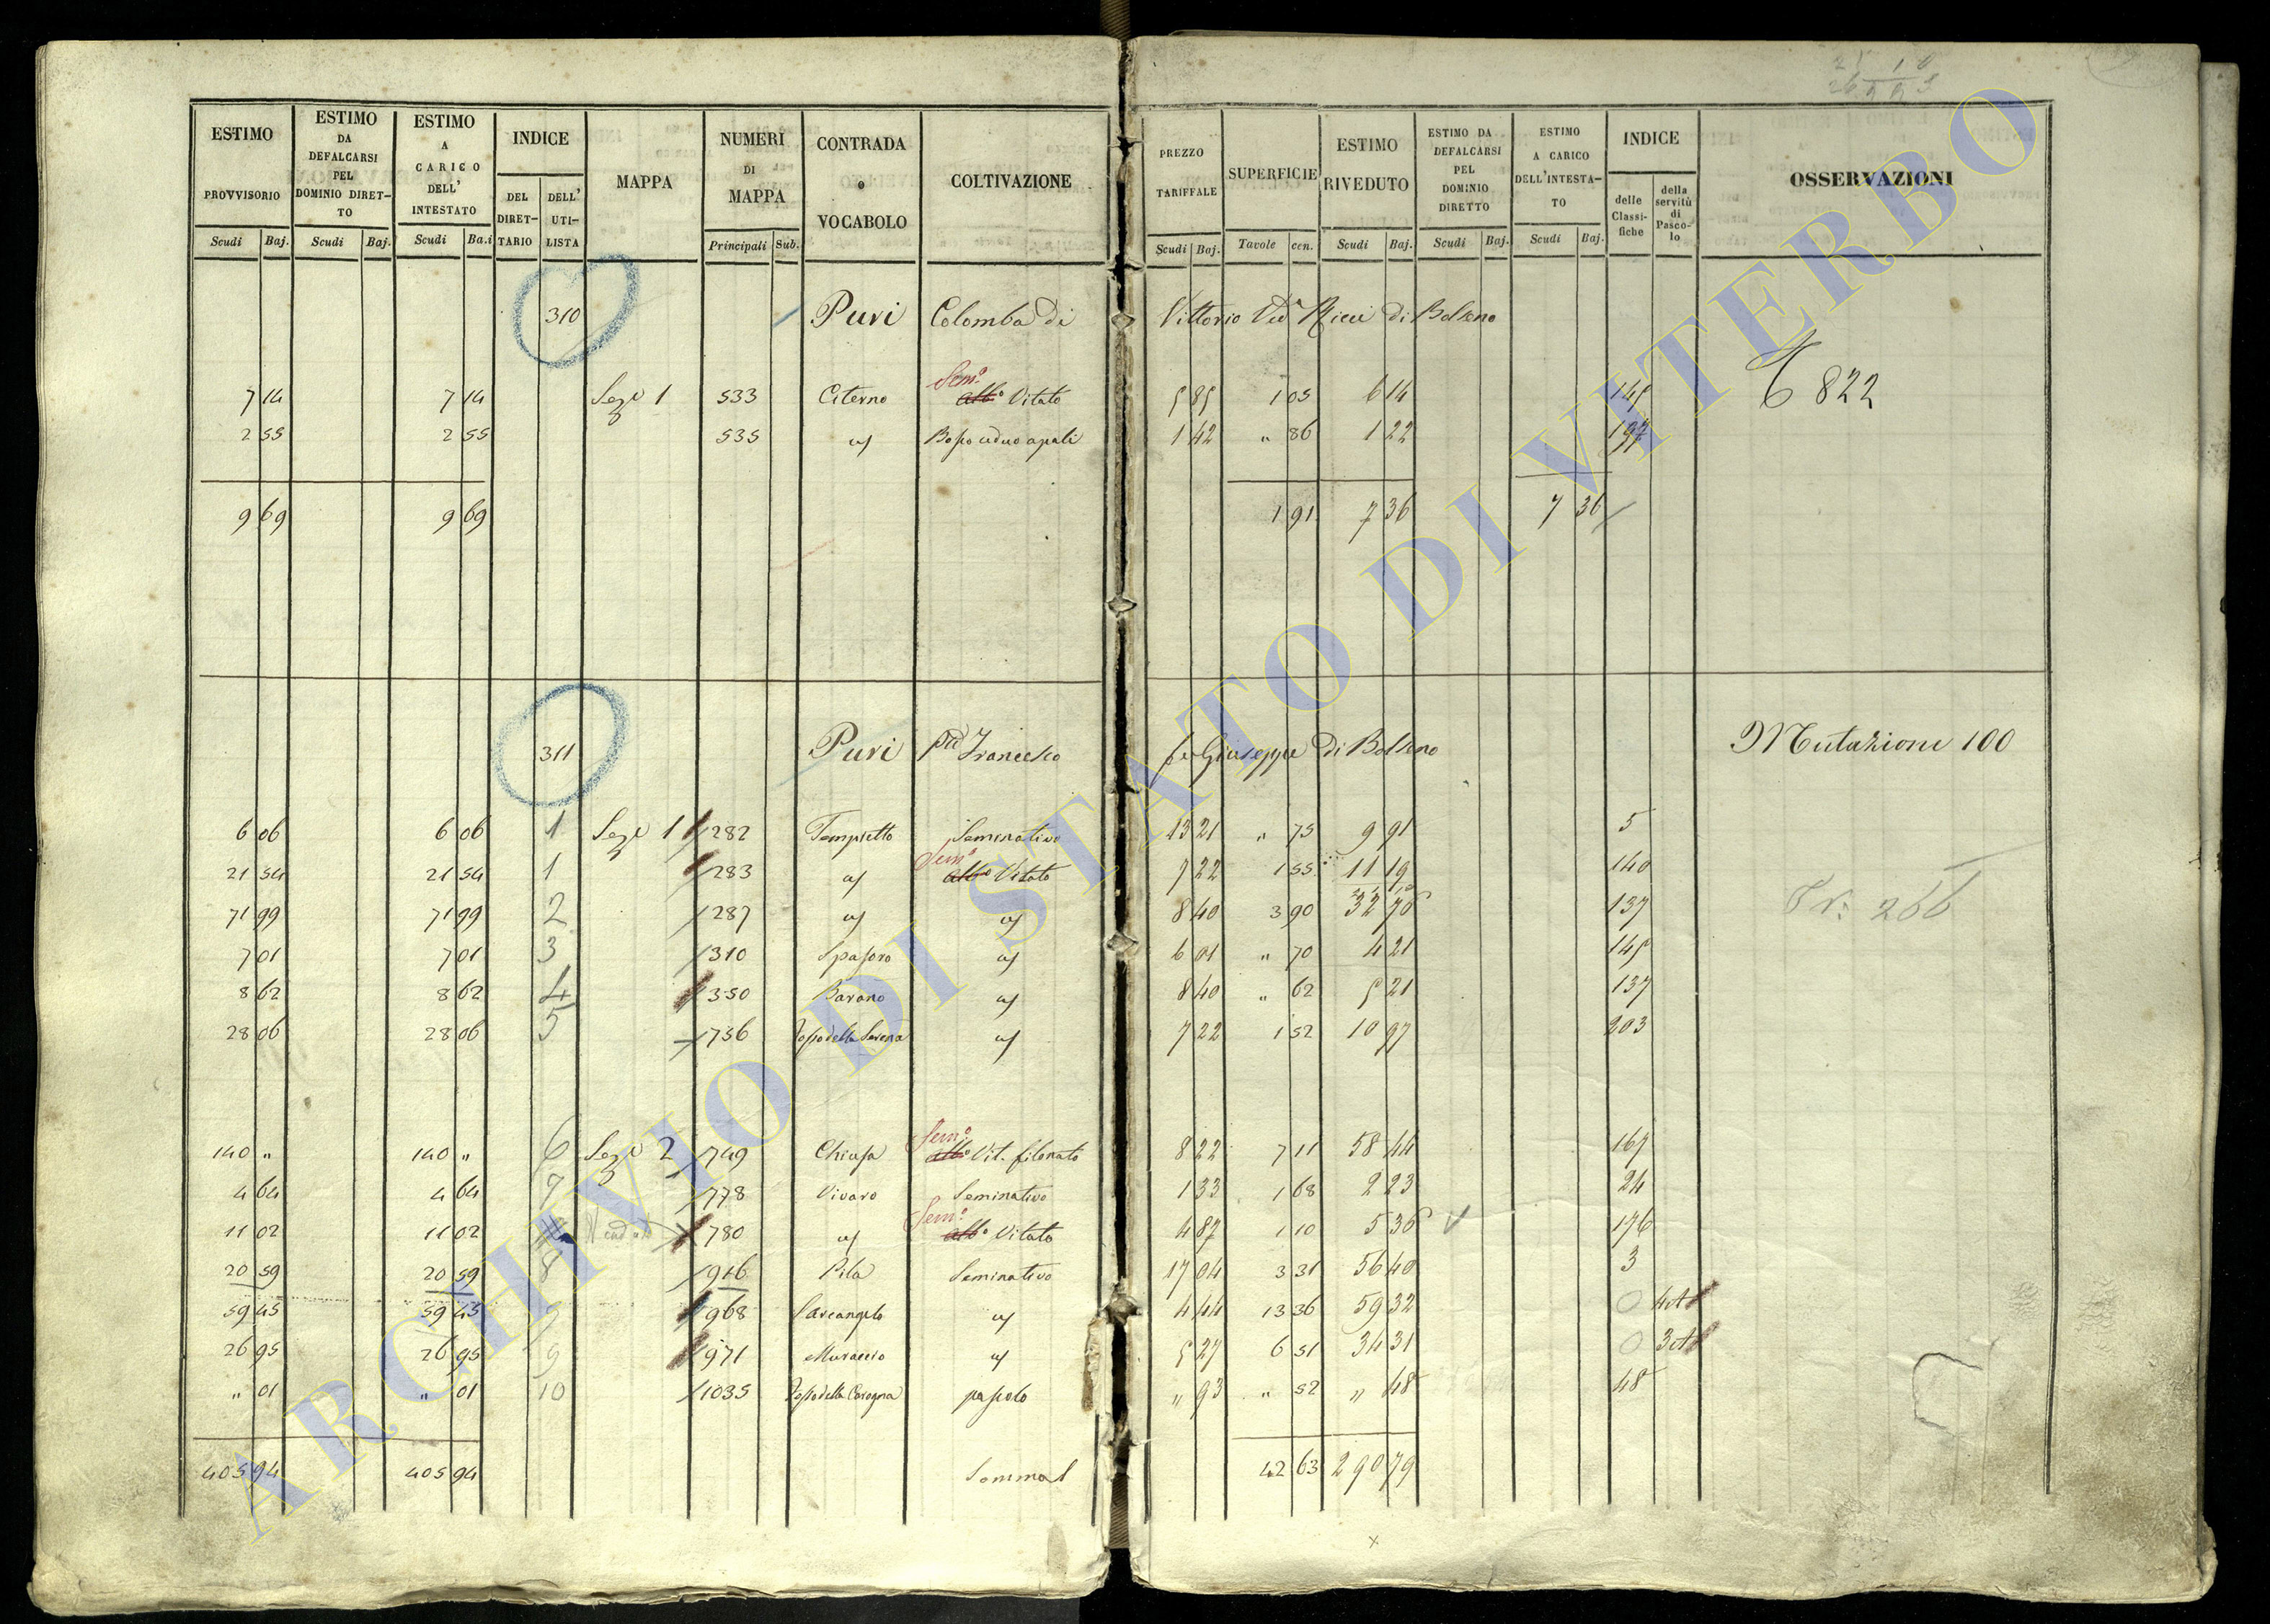 ESTIMO PROVVISORIO Scudi Baj.
ESTIMO DA DEFALCARSI PEL DOMINIO DIRET-TO Scudi Baj.
ESTIMO A CARICO DELL' INTESTATO Scudi Ba.i
INDICE DEL DIRET-TARIO DELL' UTI-LISTA
MAPPA
NUMERI DI MAPPA Principali Sub.
CONTRADA o VOCABOLO
COLTIVAZIONE
PREZZO TARIFFALE Scudi Baj.
SUPERFICIE Tavole cen.
ESTIMO RIVEDUTO Scudi Baj.
ESTIMO DA DEFALCARSI PEL DOMINIO DIRETTO Scudi Baj.
ESTIMO A CARICO DELL'INTESTA-TO Scudi Baj.
INDICE delle Classi-fiche della servitù di Pasco-lo
OSSERVAZIONI
310 Puri Colomba di Vittorio Ved Ricci di Bolseno
7 14 7 14 Sez 1 533 Citerno Semo Albo Vitato 5 85 1 05 6 14 145 6 822
2 55 2 55 535 " Bosco ceduo a pali 1 42 " 86 1 22 197
9 69 9 69 1 91 7 36 7 36
311 Puri Francesco fu Giuseppe di Bolseno Mutazione 100
6 06 6 06 1 Sez 1 282 Tempietto Seminativo 13 21 " 75 9 91 5
21 54 21 54 1 283 " Semo Albo Vitato 7 22 1 55 11 19 140
71 99 71 99 2 287 " " 8 40 3 90 32 76 137 Tr: 266
7 01 7 01 3 310 " 6 01 " 70 4 21 145
8 62 8 62 4 350 Barano " 8 40 " 62 5 21 137
28 06 28 06 5 756 Fosso della " 7 22 1 52 10 97 203
140 " 140 " 6 Sez 2 749 Chiusa Semo Albo Vit. filonato 8 22 7 11 58 44 167
4 64 4 64 7 778 Vivaro Seminativo 1 33 1 68 2 23 24
11 02 11 02 780 " Semo Albo Vitato 4 87 1 10 5 36 176
20 59 20 59 8 916 Pila Seminativo 17 04 3 31 56 40 3
59 45 59 45 968 Sarcangelo " 4 44 13 36 59 32 0
26 95 26 95 9 971 Muraccio " 5 27 6 51 34 31 0
" 01 " 01 10 1035 Fosso della Carogna pascolo " 93 " 52 " 48 48
405 94 405 94 Somma 42 63 290 79
ARCHIVIO DI STATO DI VITERBO